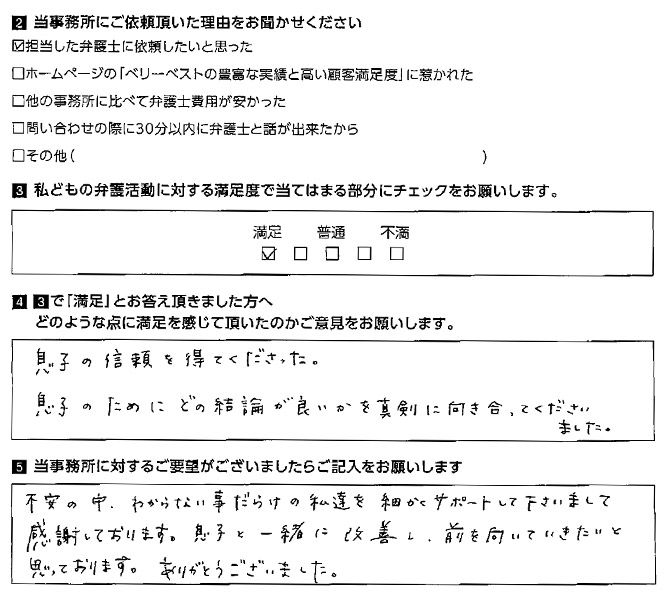 2 当事務所にご依頼頂いた理由をお聞かせください
☑担当した弁護士に依頼したいと思った
□ホームページの「ベリーベストの豊富な実績と高い顧客満足度」に惹かれた
□他の事務所に比べて弁護士費用が安かった
□問い合わせの際に30分以内に弁護士と話が出来たから
□その他( )
3 私どもの弁護活動に対する満足度で当てはまる部分にチェックをお願いします。
満足 普通 不満
☑ □ □ □ □
4 3で「満足」とお答え頂きました方へ
どのような点に満足を感じて頂いたのかご意見をお願いします。
息子の信頼を得てくださった。
息子のためにどの結論が良いかを真剣に向き合ってください
ました。
5 当事務所に対するご要望がございましたらご記入をお願いします
不安の中、わからない事だらけの私達を細かくサポートして下さいまして
感謝しております。息子と一緒に改善し、前を向いていきたいと
思っております。ありがとうございました。